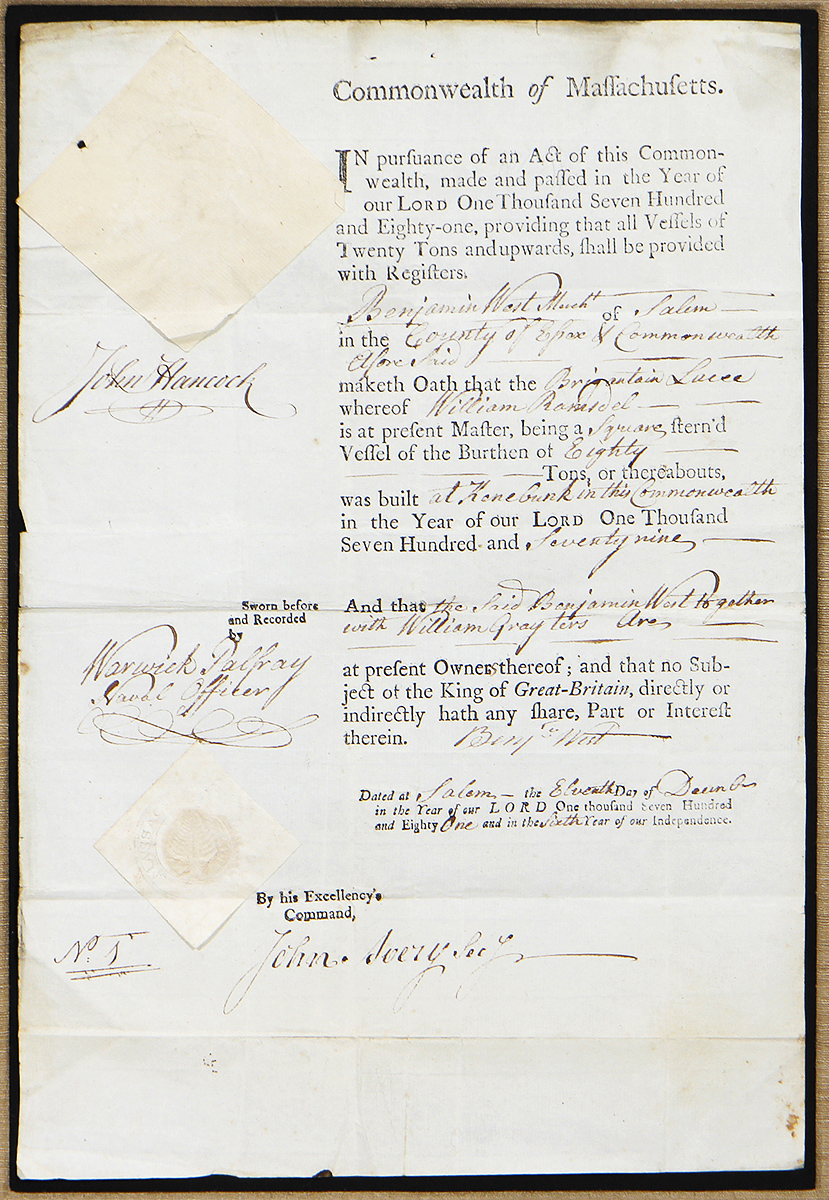 Commonwealth of Maſſachuſetts.
IN purſuance of an Act of this Common-
wealth, made and paſſed in the Year of
our LORD One Thouſand Seven Hundred
and Eighty-one, providing that all Veſſels of
Twenty Tons and upwards, ſhall be provided
with Regiſters.
Benjamin West Mercht of Salem
in the County of Eſsex & Commonwealth
Afore Said
maketh Oath that the Brigantain Lucee
whereof William Ramsdel
is at preſent Maſter, being a Square ſtern'd
Veſſel of the Burthen of Eighty
Tons, or thereabouts,
was built at Kenebunk in this Commonwealth
in the Year of our LORD One Thouſand
Seven Hundred and Seventy nine
And that the Said Benjamin West together
with William Gray ters Are
at preſent Owners thereof; and that no Sub-
ject of the King of Great-Britain, directly or
indirectly hath any ſhare, Part or Intereſt
therein. Benjn West
Dated at Salem the Elventh Day of
in the Year of our LORD One thouſand Seven Hundred
and Eighty One and in the Sixth Year of our Independence.
John Hancock
Sworn before
and Recorded
by
Warwick Palfray
Naval Officer
By his Excellency's
Command,
John Avery Secy
No. 5